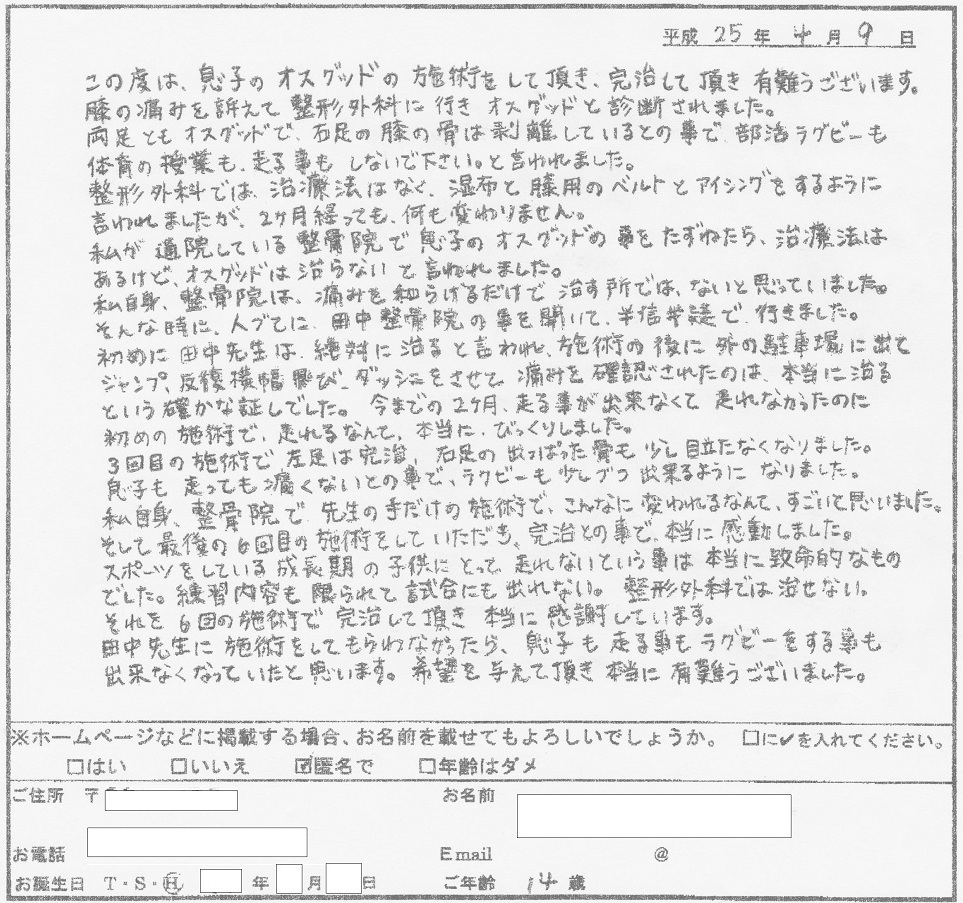 平成 25 年 4 月 9 日
この度は、息子の オスグッドの 施術をして頂き、完治して頂き 有難うございます。
膝の痛みを訴えて 整形外科に行き オスグッドと診断されました。
両足とも オスグッドで、右足の膝の骨は剥離しているとの事で、部活ラグビーも
体育の授業も、走る事も しないで下さい。と言われました。
整形外科では、治療法はなく、湿布と 膝用のベルトとアイシングをするように
言われましたが、2ヶ月経っても、何も変わりません。
私が 通院している 整骨院で 息子の オスグッドの 事を たずねたら、治療法は
あるけど、オスグッドは治らない と言われました。
私自身、整骨院は、痛みを和らげるだけで 治す所では、ないと思っていました。
そんな時に、人づてに、田中整骨院の事を聞いて、半信半疑で、行きました。
初めに 田中先生は、絶対に治ると言われ、施術の後に 外の駐車場に出て
ジャンプ、反復横幅飛び、ダッシュをさせて 痛みを確認されたのは、本当に治る
という確かな証しでした。 今までの2ヶ月、走る事が出来なくて 走れなかったのに
初めの施術で、走れるなんて、本当に、びっくりしました。
3回目の施術で 左足は完治、右足の出っぱった骨も 少し目立たなくなりました。
息子も 走っても痛くないとの事で、ラグビーも少しづつ 出来るように なりました。
私自身、整骨院で 先生の手だけの施術で、こんなに 変われるなんて、すごいと思いました。
そして最後の6回目の施術をしていただき、完治との事で、本当に 感動しました。
スポーツをしている成長期の子供にとって 走れないという事は 本当に致命的なもの
でした。練習内容も限られて 試合にも出れない。 整形外科では治せない。
それを 6回の施術で 完治して頂き 本当に感謝しています。
田中先生に施術をしてもらわなかったら、息子も 走る事もラグビーをする事も
出来なくなっていたと思います。希望を与えて頂き 本当に有難うございました。
※ホームページなどに掲載する場合、お名前を載せてもよろしいでしょうか。 □に✓を入れてください。
□はい □いいえ ☑匿名で □年齢はダメ
ご住所 〒 お名前
お電話 Email @
お誕生日 T・S・H 年 月 日 ご年齢 14 歳